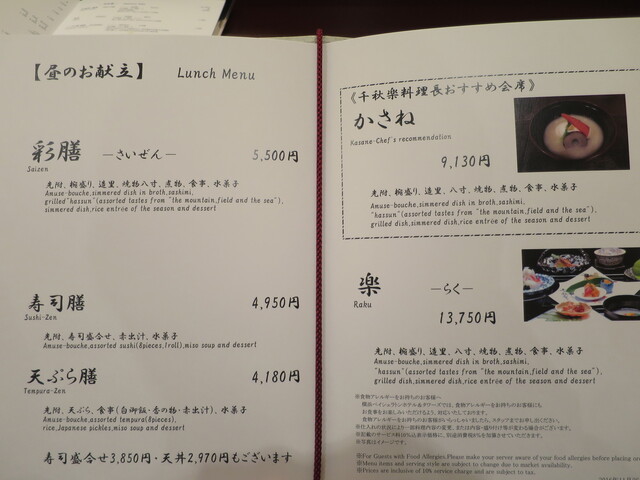 【昼のお献立】 Lunch Menu
彩膳 ―さいぜん― 5,500円
Saizen
先附、椀盛り、造里、焼物八寸、煮物、食事、水菓子
Amuse-bouche,simmered dish in broth,sashimi,
grilled"hassun"(assorted tastes from "the mountain,field and the sea"),
simmered dish,rice entrée of the season and dessert
寿司膳 4,950円
Sushi-Zen
先附、寿司盛合せ、赤出汁、水菓子
Amuse-bouche,assorted sushi(8pieces,1roll),miso soup and dessert
天ぷら膳 4,180円
Tempura-Zen
先附、天ぷら、食事(白御飯・香の物・赤出汁)、水菓子
Amuse-bouche,assorted tempura(8pieces),
rice,Japanese pickles,miso soup and dessert
寿司盛合せ3,850円・天丼2,970円もございます
《千秋楽料理長おすすめ会席》
かさね
Kasane-Chef's recommendation
9,130円
先附、椀盛り、造里、八寸、焼物、煮物、食事、水菓子
Amuse-bouche,simmered dish in broth,sashimi,
"hassun"(assorted tastes from "the mountain,field and the sea"),
grilled dish,simmered dish,rice entrée of the season and dessert
楽 ―らく―
Raku
13,750円
先附、椀盛り、造里、八寸、焼物、煮物、食事、水菓子
Amuse-bouche,simmered dish in broth,sashimi,
"hassun"(assorted tastes from "the mountain,field and the sea"),
grilled dish,simmered dish,rice entrée of the season and dessert
※食物アレルギーをお持ちのお客様へ
※写真はイメージです。
※For Guests with Food Allergies.Please make your server aware of your food allergies before placing
※Menu items and serving style are subject to change due to market availability.
※Prices are inclusive of service charge and are subject to tax.